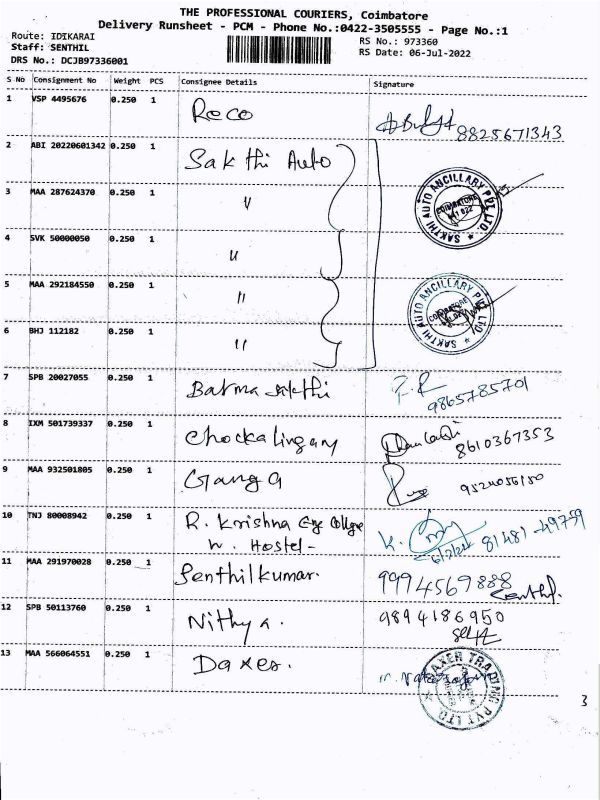 THE PROFESSIONAL COURIERS, Coimbatore
Delivery Runsheet - PCM - Phone No.:0422-3505555 - Page No.:1
Route: IDIKARAI
Staff: SENTHIL
DRS No.: DCJB97336001
RS No.: 973360
RS Date: 06-Jul-2022
S No Consignment No Weight PCS Consignee Details Signature
1 VSP 4495676 0.250 1 Reco 8825671343
2 ABI 20220601342 0.250 1 Sakthi Auto
3 MAA 287624370 0.250 1 "
SAKTHI AUTO ANCILLARY PVT LTD
COIMBATORE
4 SVK 50000050 0.250 1 "
5 MAA 292184550 0.250 1 "
SAKTHI AUTO ANCILLARY PVT LTD
COIMBATORE
6 BHJ 112182 0.250 1 "
7 SPB 20027055 0.250 1 Barma sakthi 9865785701
8 IXM 501739337 0.250 1 Chockalingam 8610367353
9 MAA 932501805 0.250 1 Ganga
10 TNJ 80008942 0.250 1 R. Krishna Eye College
W. Hostel- K. 81481-49759
11 MAA 291970028 0.250 1 Senthilkumar. 9994569888
Senthil.
12 SPB 50113760 0.250 1 Nithya. 9894186950
13 MAA 566064551 0.250 1 Daxer.
DAXER TRADING PVT LTD
3